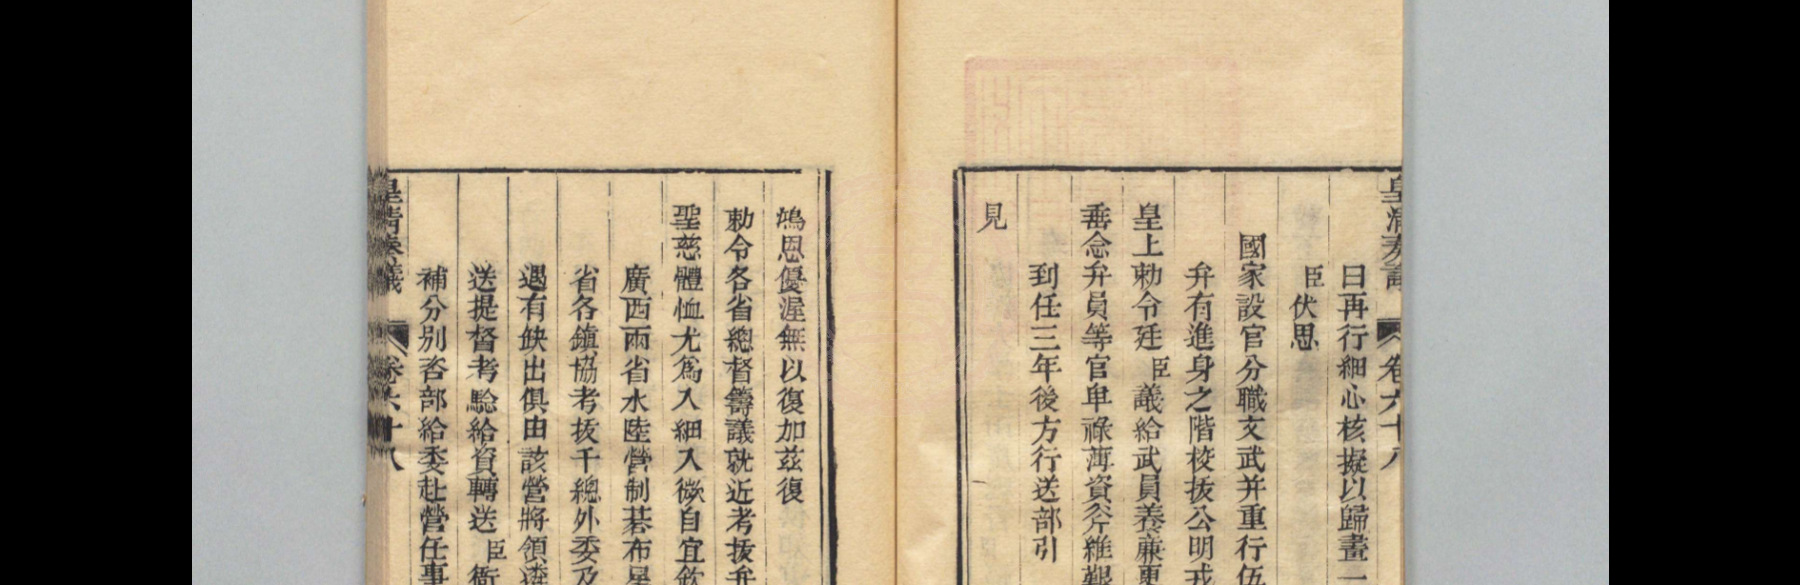 皇清奏議 卷六十八
日再行細心核擬以歸畫一
臣伏思
國家設官分職文武并重行伍
弁有進身之階校拔公明戎
皇上勅令廷臣議給武員養廉更
垂念弁員等官卑祿薄資斧維艱
到任三年後方行送部引
見
鴻恩優渥無以復加茲復
勅令各省總督籌議就近考拔弁
聖慈體恤尤為入細入微自宜欽
廣西兩省水陸營制碁布星
省各鎮協考拔千總外委及
遇有缺出俱由該營將領遴
送提督考驗給資轉送臣衙
補分別咨部給委赴營任事
皇清奏議 卷六十八